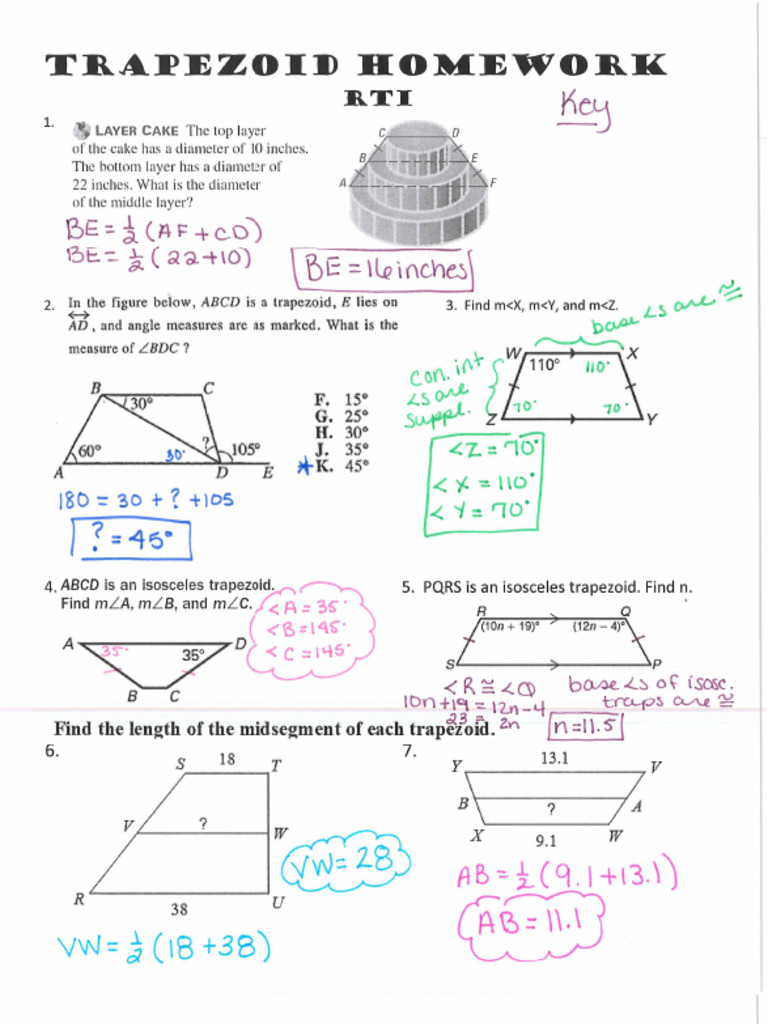 TRAPEZOID HOMEWORK
RTI
Key
1.
LAYER CAKE The top layer
of the cake has a diameter of 10 inches.
The bottom layer has a diameter of
22 inches. What is the diameter
of the middle layer?
C D
B E
A F
BE = 1/2 (AF + CD)
BE = 1/2 (22+10)
BE = 16 inches
2. In the figure below, ABCD is a trapezoid, E lies on
AD, and angle measures are as marked. What is the
measure of ∠BDC ?
B C
30°
60° 30° ? 105°
A D E
F. 15°
G. 25°
H. 30°
J. 35°
* K. 45°
180 = 30 + ? + 105
? = 45°
3. Find m<X, m<Y, and m<Z.
base ∠s are ≅
W X
110° 110°
con. int
∠s are
suppl.
70° 70°
Z Y
<Z = 70°
<X = 110°
<Y = 70°
4. ABCD is an isosceles trapezoid.
Find m∠A, m∠B, and m∠C.
<A = 35°
<B = 145°
<C = 145°
A D
35° 35°
B C
5. PQRS is an isosceles trapezoid. Find n.
R Q
(10n + 19)° (12n – 4)°
S P
<R ≅ <Q
base ∠s of isosc.
traps are ≅
10n+19 = 12n-4
23 = 2n
n = 11.5
Find the length of the midsegment of each trapezoid.
6.
18
S T
V ? W
R U
38
VW = 28
VW = 1/2 (18 + 38)
7.
13.1
Y V
B ? A
X W
9.1
AB = 1/2 (9.1 + 13.1)
AB = 11.1